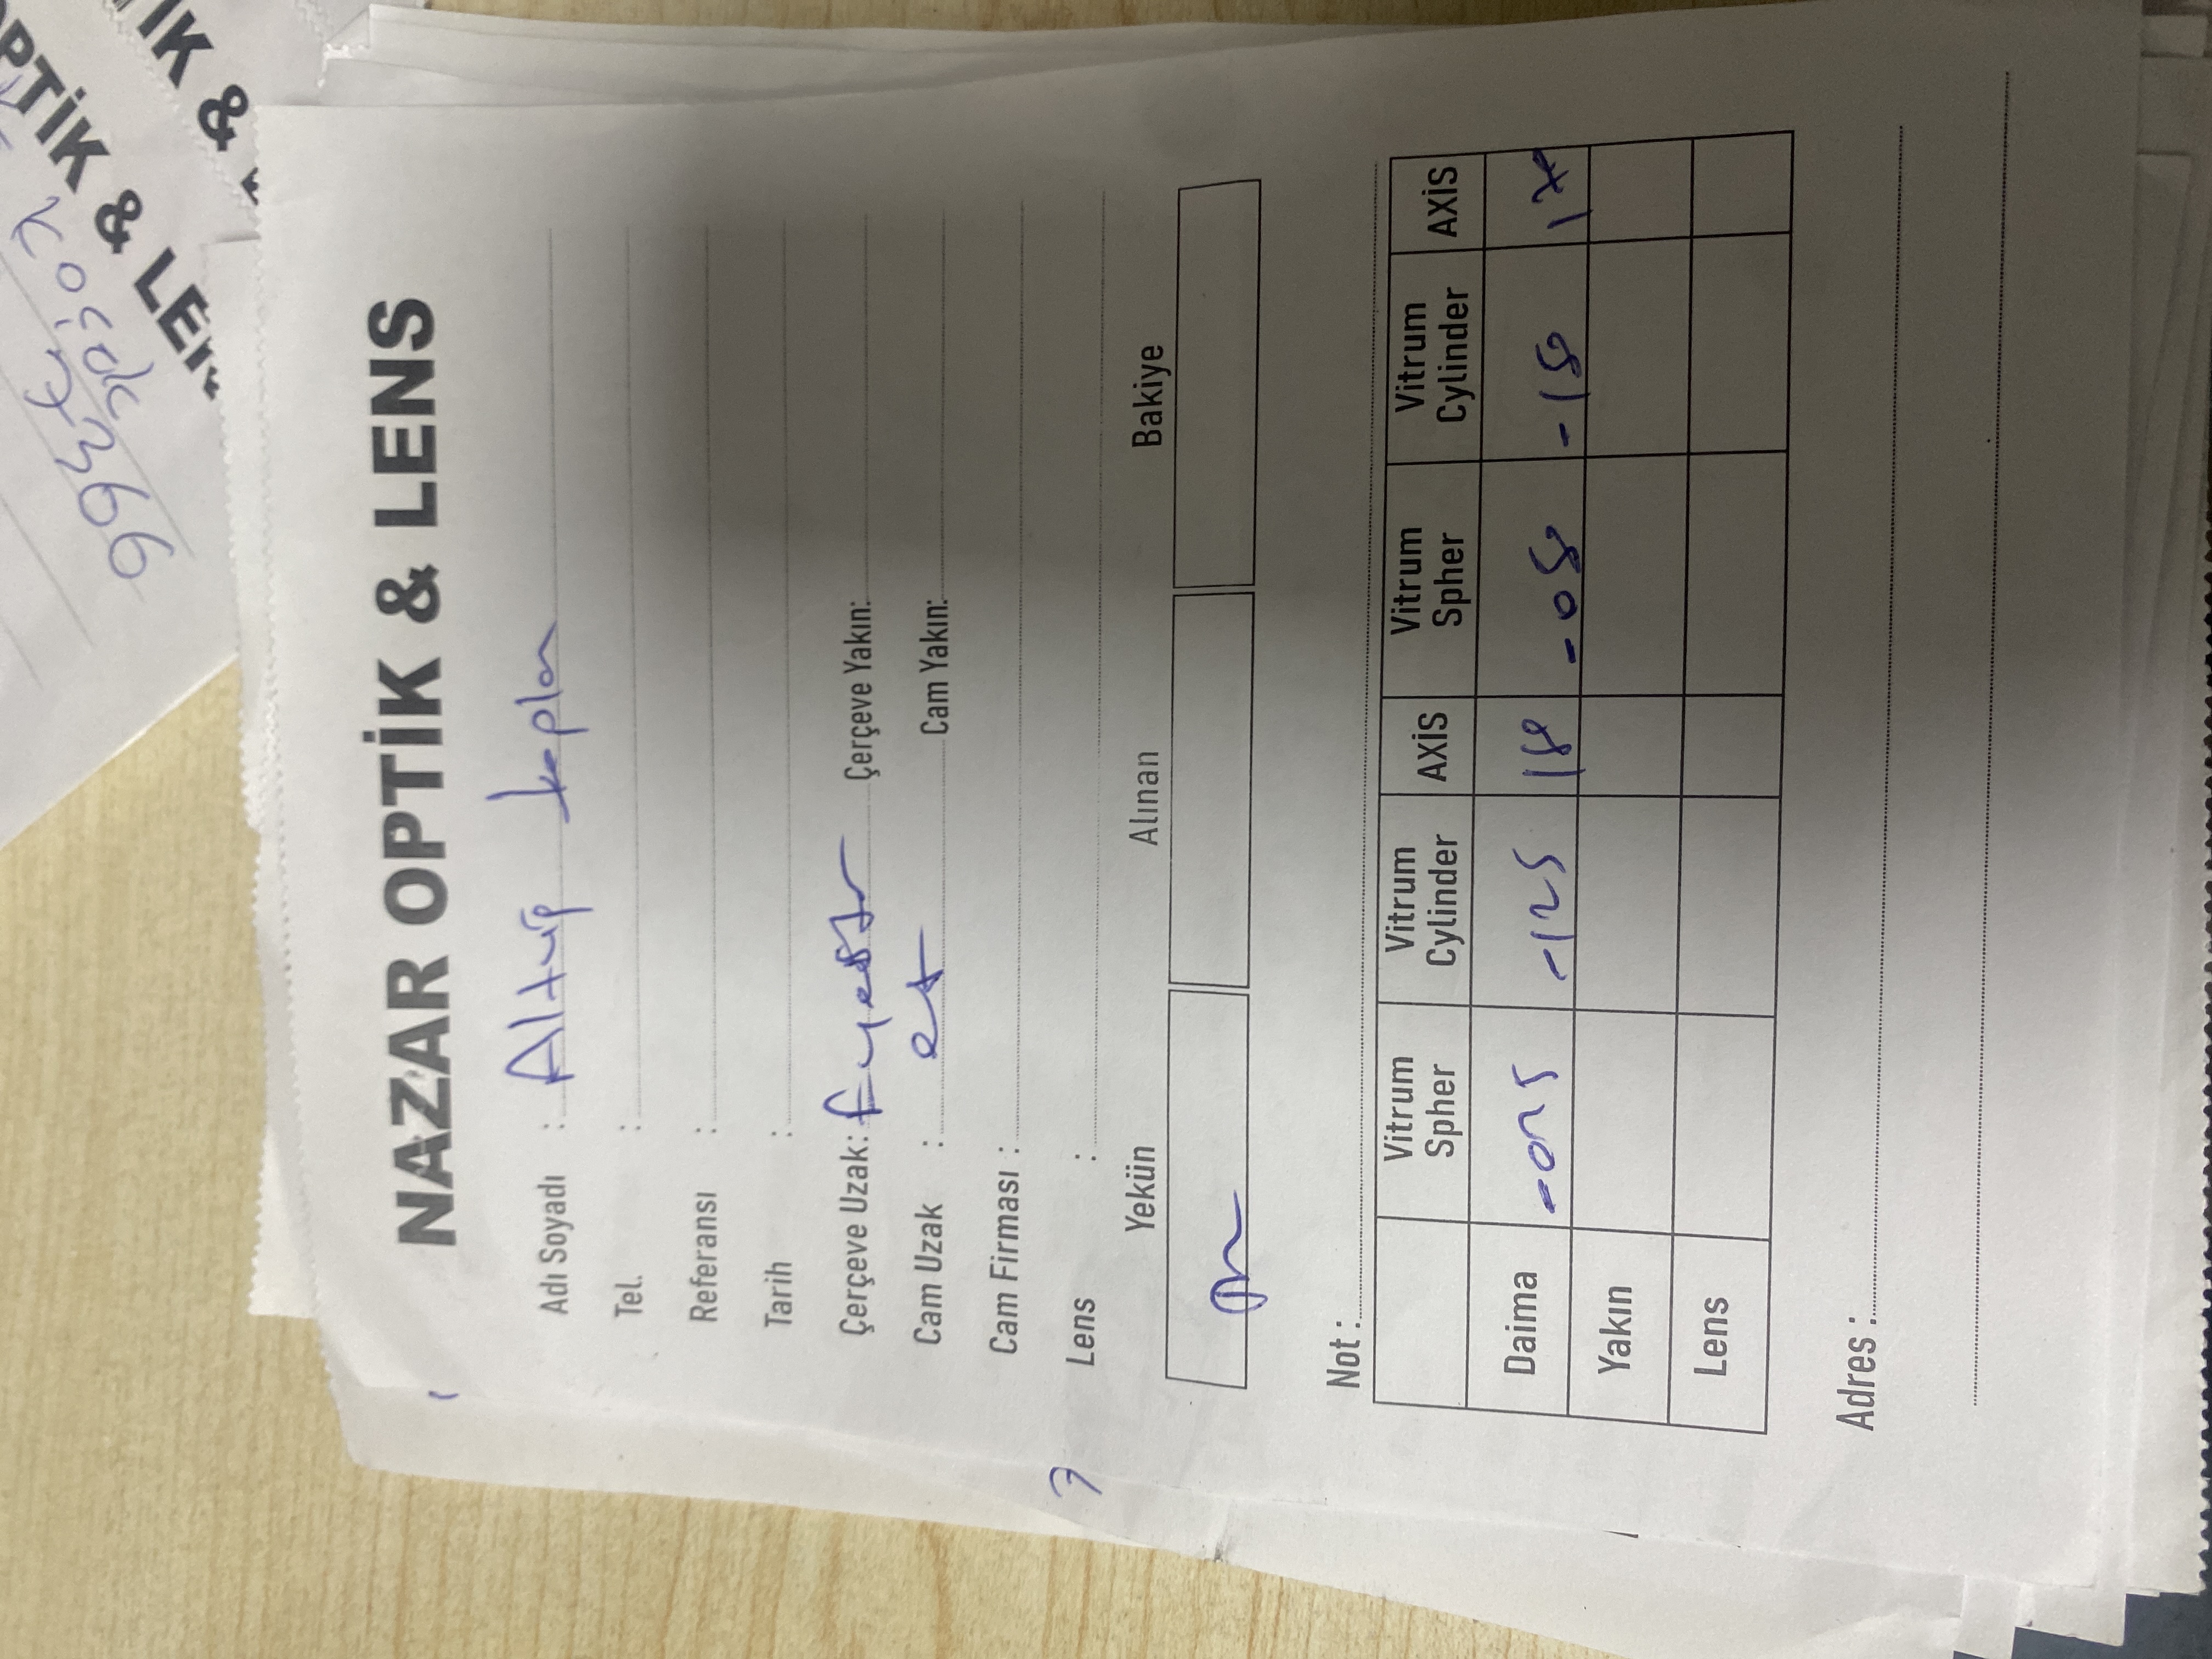 OPTİK & LEN
Koçak
7366
İK &
NAZAR OPTİK & LENS
Adı Soyadı : Altuğ kaplan
Tel. :
Referansı :
Tarih :
Çerçeve Uzak: Çerçeve Yakın:
Cam Uzak : Cam Yakın:
Cam Firması :
7
Lens :
Yekün Alınan Bakiye
Not :
Vitrum Spher Vitrum Cylinder AXİS Vitrum Spher Vitrum Cylinder AXİS
Daima -075 -125 180 -050 -150 170
Yakın
Lens
Adres :